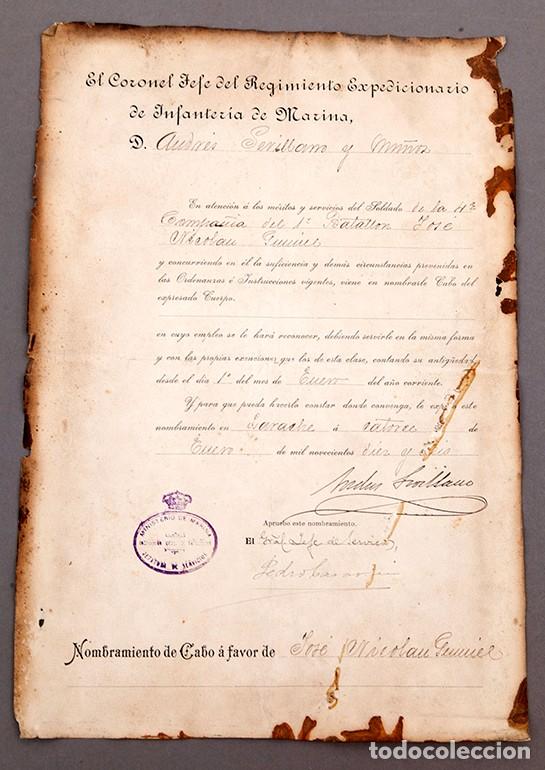 El Coronel Jefe del Regimiento Expedicionario
de Infantería de Marina,
D. Andrés Sevillano y Muñoz
En atención á los méritos y servicios del Soldado de la 4ª
Compañia del 1º Batallon José
Nicolau Guniel
y concurriendo en él la suficiencia y demás circunstancias prevenidas en
las Ordenanzas é Instrucciones vigentes, viene en nombrarle Cabo del
expresado Cuerpo.
en cuyo empleo se le hará reconocer, debiendo servirle en la misma forma
y con las propias exenciones que los de esta clase, contando su antigüedad
desde el día 1º del mes de Enero del año corriente.
Y para que pueda hacerlo constar donde convenga, le expido este
nombramiento en Larache á catorce de
Enero de mil novecientos diez y seis
Andres Sevillano
Apruebo este nombramiento.
El Gral Jefe de servicios,
Pedro
MINISTERIO DE MARINA
Nombramiento de Cabo á favor de José Nicolau Guniel
todocoleccion
todocoleccion.net